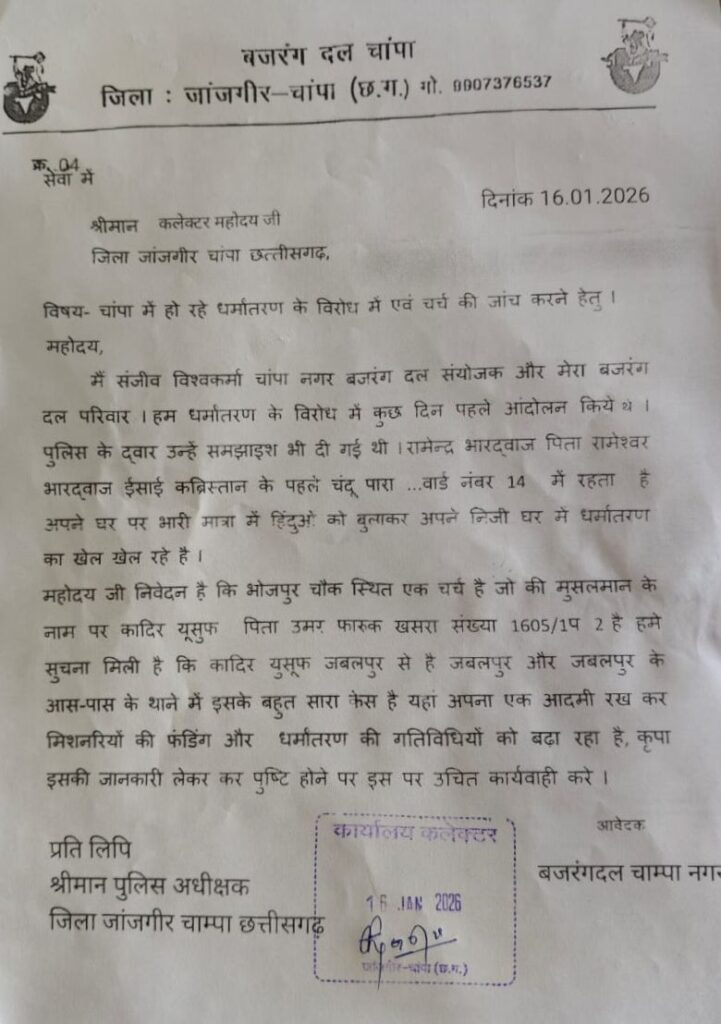 बजरंग दल चांपा
जिला : जांजगीर–चांपा (छ.ग.) मो. 9907376537
क्र. 04
सेवा में
दिनांक 16.01.2026
श्रीमान कलेक्टर महोदय जी
जिला जांजगीर चांपा छत्तीसगढ़,
विषय- चांपा में हो रहे धर्मातरण के विरोध में एवं चर्च की जांच करने हेतु ।
महोदय,
मैं संजीव विश्वकर्मा चांपा नगर बजरंग दल संयोजक और मेरा बजरंग
दल परिवार । हम धर्मातरण के विरोध में कुछ दिन पहले आंदोलन किये थे ।
पुलिस के द्वार उन्हें समझाइश भी दी गई थी । रामेन्द्र भारद्वाज पिता रामेश्वर
भारद्वाज ईसाई कब्रिस्तान के पहले चंदू पारा ...वार्ड नंबर 14 में रहता है
अपने घर पर भारी मात्रा में हिंदुओ को बुलाकर अपने निजी घर में धर्मातरण
का खेल खेल रहे है ।
महोदय जी निवेदन है कि भोजपुर चौक स्थित एक चर्च है जो की मुसलमान के
नाम पर कादिर यूसुफ पिता उमर फारुक खसरा संख्या 1605/1प 2 है हमे
सुचना मिली है कि कादिर युसूफ जबलपुर से है जबलपुर और जबलपुर के
आस-पास के थाने में इसके बहुत सारा केस है यहां अपना एक आदमी रख कर
मिशनरियों की फंडिंग और धर्मातरण की गतिविधियों को बढा रहा है, कृपा
इसकी जानकारी लेकर कर पुष्टि होने पर इस पर उचित कार्यवाही करे ।
आवेदक
बजरंगदल चाम्पा नगर
प्रति लिपि
श्रीमान पुलिस अधीक्षक
जिला जांजगीर चाम्पा छत्तीसगढ़
कार्यालय कलेक्टर
16 JAN 2026
जांजगीर-चांपा (छ.ग.)